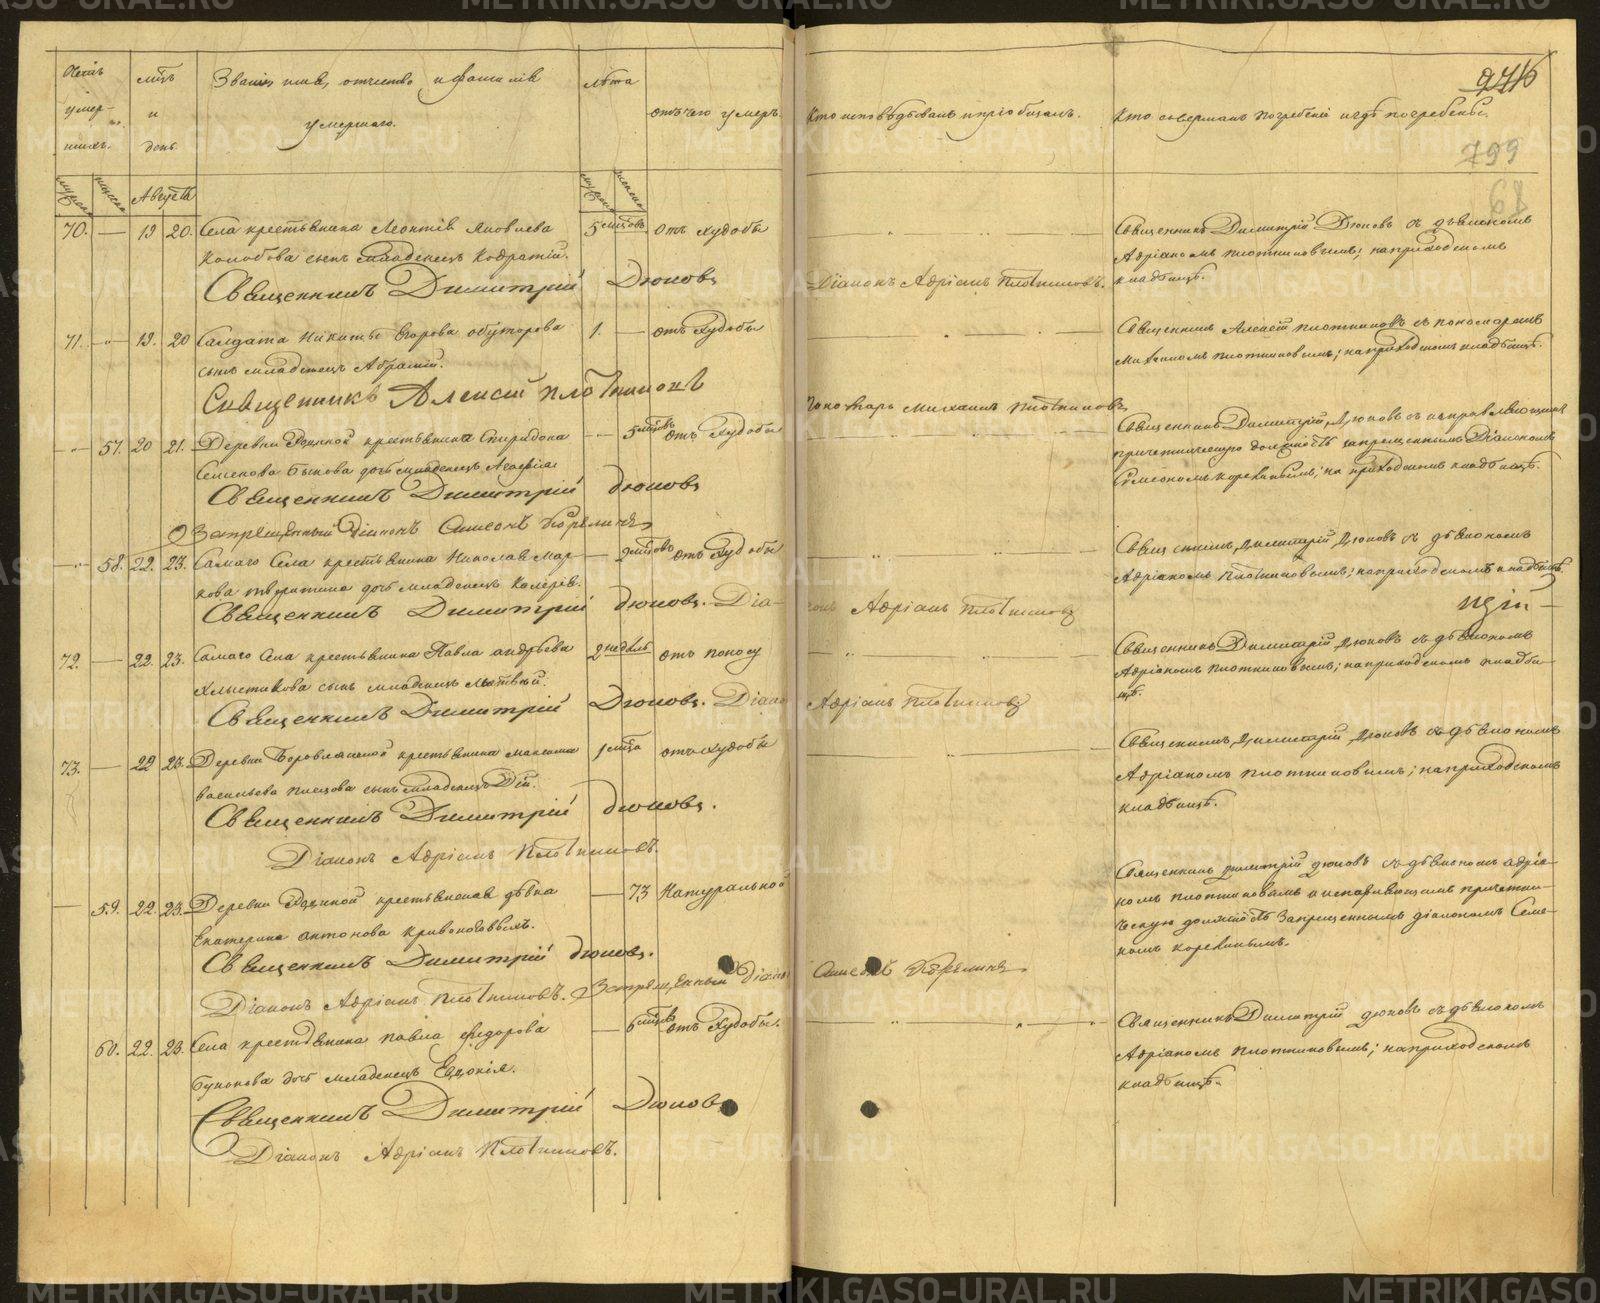 Счетъ умер- шихъ.
мцъ и день.
Званіе, имя, отчество и фамилія умершаго.
лѣта
отъ чего умеръ.
Кто исповѣдывалъ и пріобщалъ.
Кто совершалъ погребеніе и гдѣ погребены.
799
68
Августъ
70. — 19 20. Села крестьянина Леонтія Яковлева 5 мцовъ отъ худобы
Колобова сынъ младенецъ Кодратій.
Священникъ Димитрій Дюковъ
Діаконъ Адріанъ Плотниковъ.
Священникъ Димитрій Дюковъ съ діакономъ
Адріаномъ Плотниковымъ; на приходскомъ
кладбищѣ.
71. — 19. 20 Салдата Никиты Егорова 1. — отъ худобы
сынъ младенецъ
Священникъ Алексій Плотниковъ
Пономарь Михаилъ Плотниковъ
Священникъ Алексей Плотниковъ съ пономаремъ
Михаиломъ Плотниковымъ; на приходскомъ кладбищѣ.
— 57. 20 21. Деревни крестьянина Спиридона — 5 мцовъ отъ худобы
Семенова Быкова дочь младенецъ Агафія.
Священникъ Димитрій Дюковъ
Запрещенный Діаконъ Симеонъ Корелинъ
Священникъ Димитрій Дюковъ съ исправляющимъ
причетническую должность запрещеннымъ Діакономъ
Симеономъ Корелинымъ; на приходскомъ кладбищѣ.
— 58. 22. 23. Самаго Села крестьянина Николая Мар- — 2 мцовъ отъ худобы
кова дочь младенецъ Калерія.
Священникъ Димитрій Дюковъ. Діа-
конъ Адріанъ Плотниковъ
Священникъ Димитрій Дюковъ съ діакономъ
Адріаномъ Плотниковымъ; на приходскомъ кладбищѣ.
72. — 22. 23. Самаго Села крестьянина Павла Андрѣева 2 недѣль отъ поносу
Хлыстикова сынъ младенецъ Матвѣй.
Священникъ Димитрій Дюковъ. Діаконъ
Адріанъ Плотниковъ
Священникъ Димитрій Дюковъ съ діакономъ
Адріаномъ Плотниковымъ; на приходскомъ кладби-
щѣ.
73. — 22 23. Деревни Боровлянской крестьянина Максима 1 мца отъ худобы
Васильева сынъ младенецъ Дій.
Священникъ Димитрій Дюковъ.
Діаконъ Адріанъ Плотниковъ.
Священникъ Димитрій Дюковъ съ діакономъ
Адріаномъ Плотниковымъ; на приходскомъ
кладбищѣ.
— 59. 22. 23. Деревни крестьянская дѣвка — 73 Натуральной
Екатерина Антонова Кривоноговыхъ.
Священникъ Димитрій Дюковъ.
Діаконъ Адріанъ Плотниковъ. Запрещенный Діаконъ
Симеонъ Корелинъ
Священникъ Димитрій Дюковъ съ діакономъ Адріа-
номъ Плотниковымъ и исправляющимъ причетни-
ческую должность Запрещеннымъ діакономъ Симе-
номъ Корелинымъ.
60. 22. 23. Села крестьянина Павла Федорова — 6 мцовъ отъ худобы.
дочь младенецъ Евдокія.
Священникъ Димитрій Дюковъ
Діаконъ Адріанъ Плотниковъ.
Священникъ Димитрій Дюковъ съ діакономъ
Адріаномъ Плотниковымъ; на приходскомъ
кладбищѣ.
METRIKI.GASO-URAL.RU